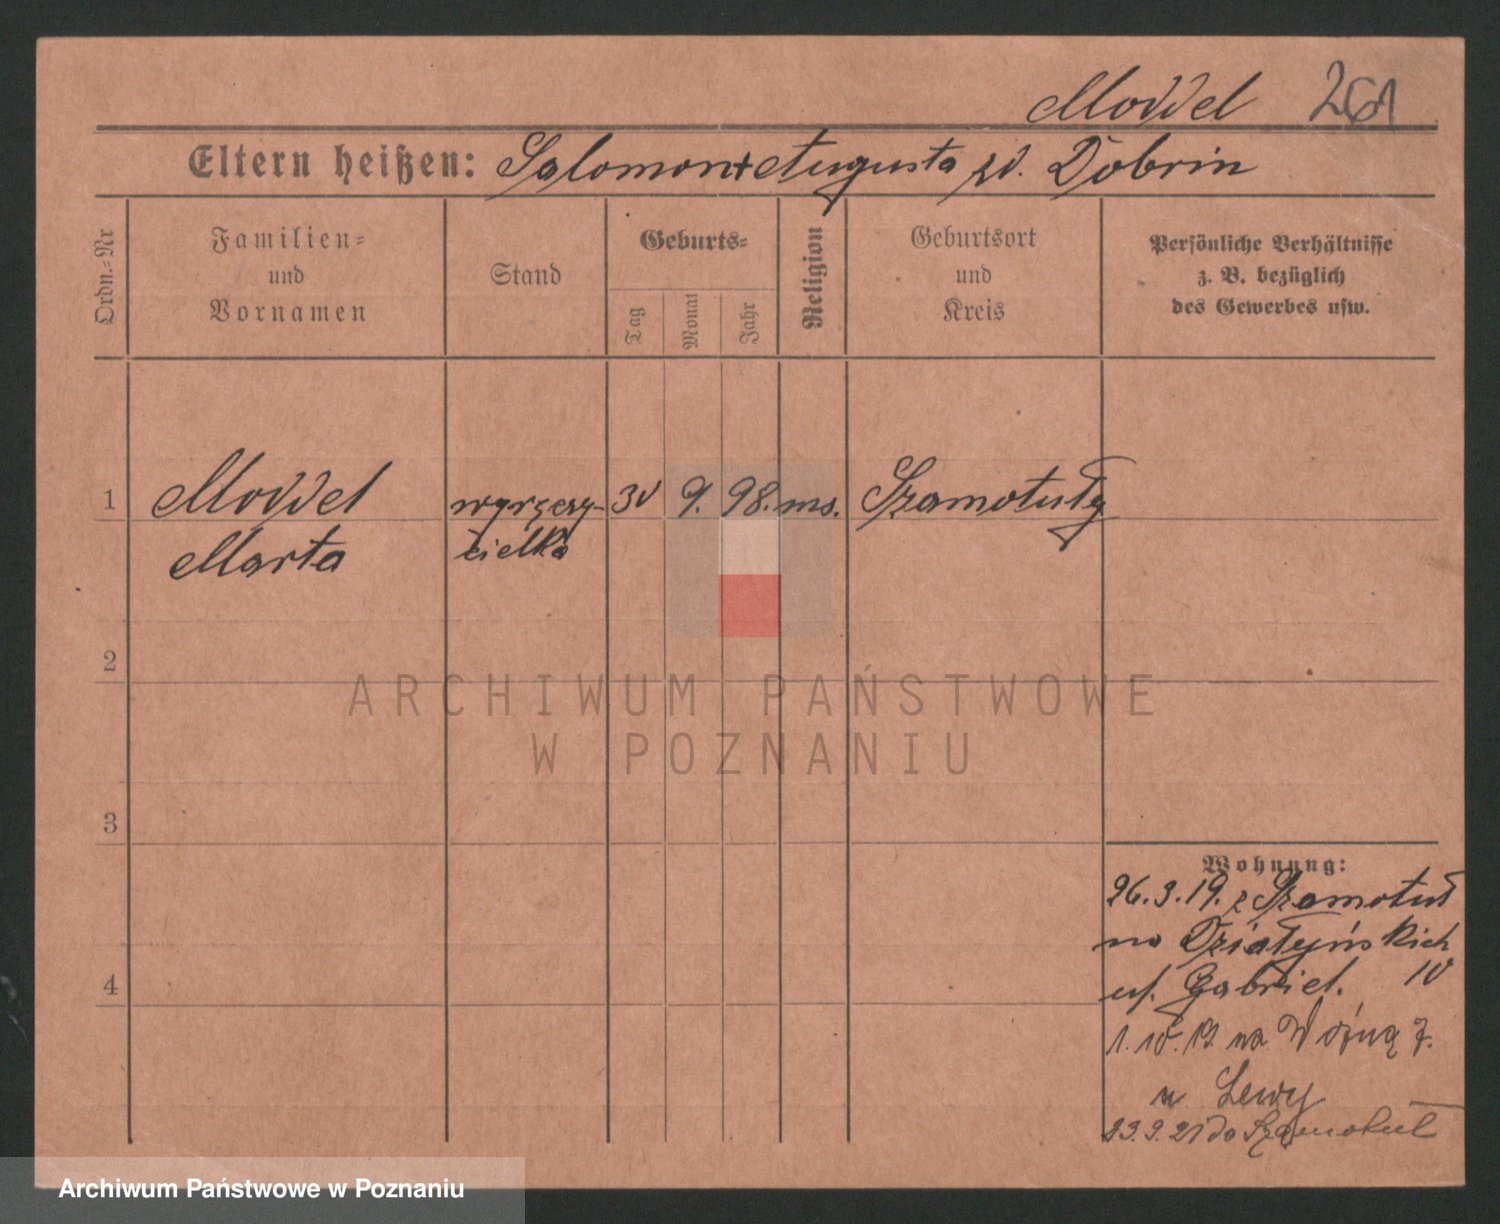 Movvel 261
Eltern heißen: Salomon + Augusta zd. Dobrin
Ordn.-Nr
Familien-
und
Vornamen
Stand
Geburts-
Tag
Monat
Jahr
Religion
Geburtsort
und
Kreis
Persönliche Verhältnisse
z. B. bezüglich
des Gewerbes usw.
1 Movvel 30 9. 98. ms. Szamotuły
Marta
2
ARCHIWUM PAŃSTWOWE
W POZNANIU
3
Wohnung:
26.3.19. z Szamotuł
na Działyńskich
uf. Gabriel. 10
4
na
u Lewy
23.9.21 do Szamotuł
Archiwum Państwowe w Poznaniu